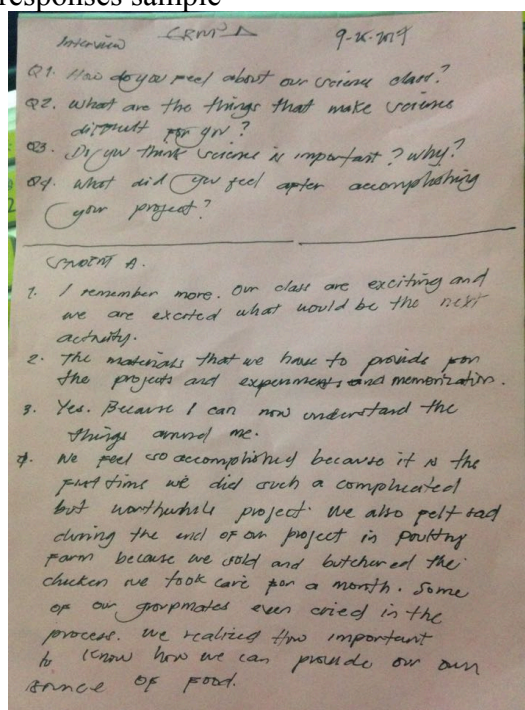 responses sample
Interview GROUP A 9-26-2014
Q1. How do you feel about our science class?
Q2. What are the things that make science
difficult for you?
Q3. Do you think science is important? why?
Q4. What did you feel after accomplishing
your project?
STUDENT A.
1. I remember more. Our class are exciting and
we are excited what would be the next
activity.
2. The materials that we have to provide for
the projects and experiments and memorization.
3. Yes. Because I can now understand the
things around me.
4. We feel so accomplished because it is the
first time we did such a complicated
but worthwhile project. We also felt sad
during the end of our project in poultry
farm because we sold and butchered the
chicken we took care for a month. Some
of our groupmates even cried in the
process. We realized how important
to know how we can provide our own
source of food.